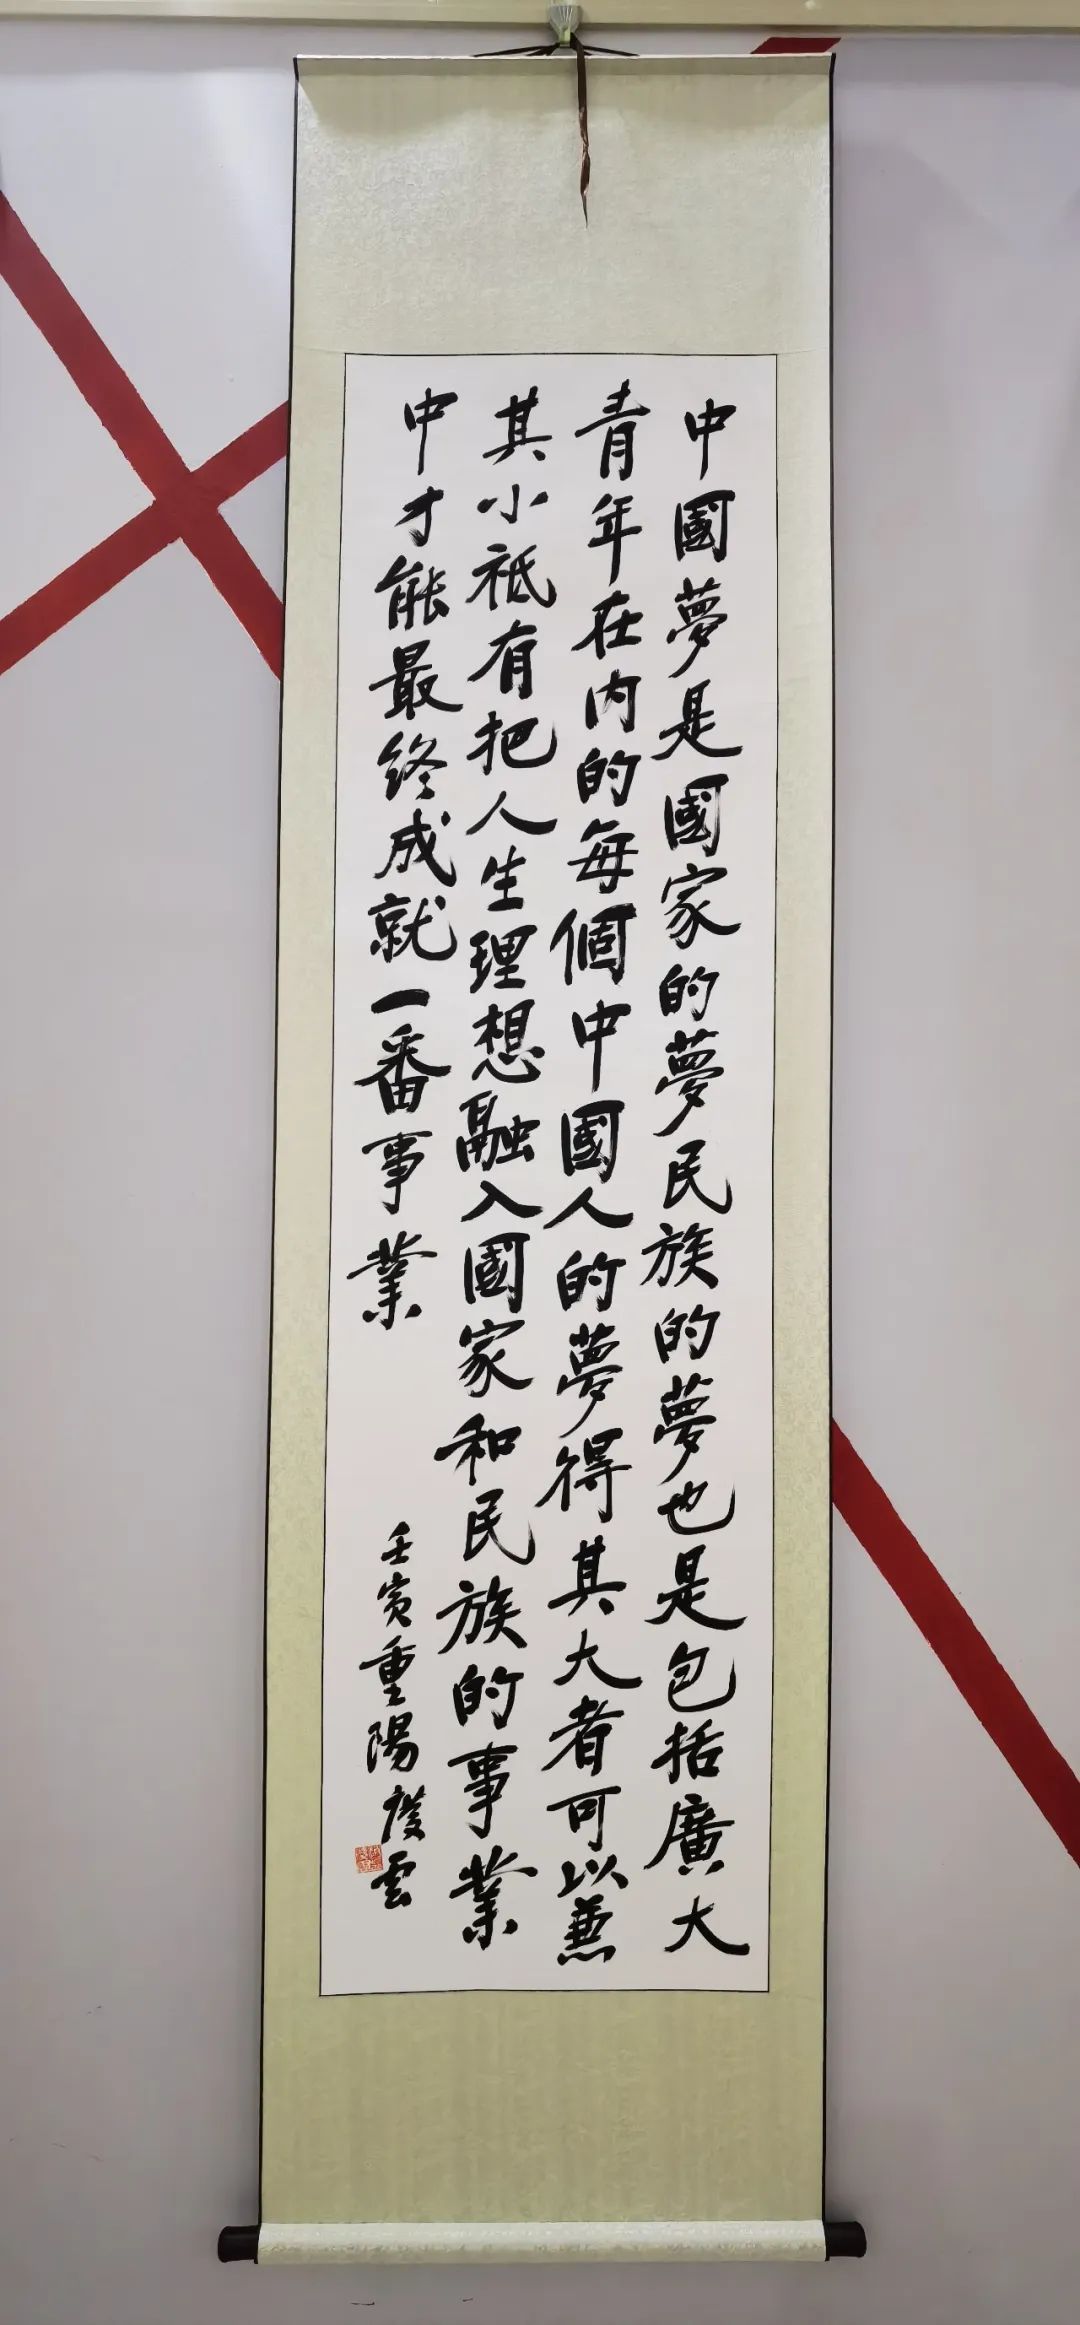 中國夢是國家的夢民族的夢也是包括廣大
青年在内的每個中國人的夢得其大者可以兼
其小祗有把人生理想融入國家和民族的事業
中才能最終成就一番事業
壬寅重陽 雲